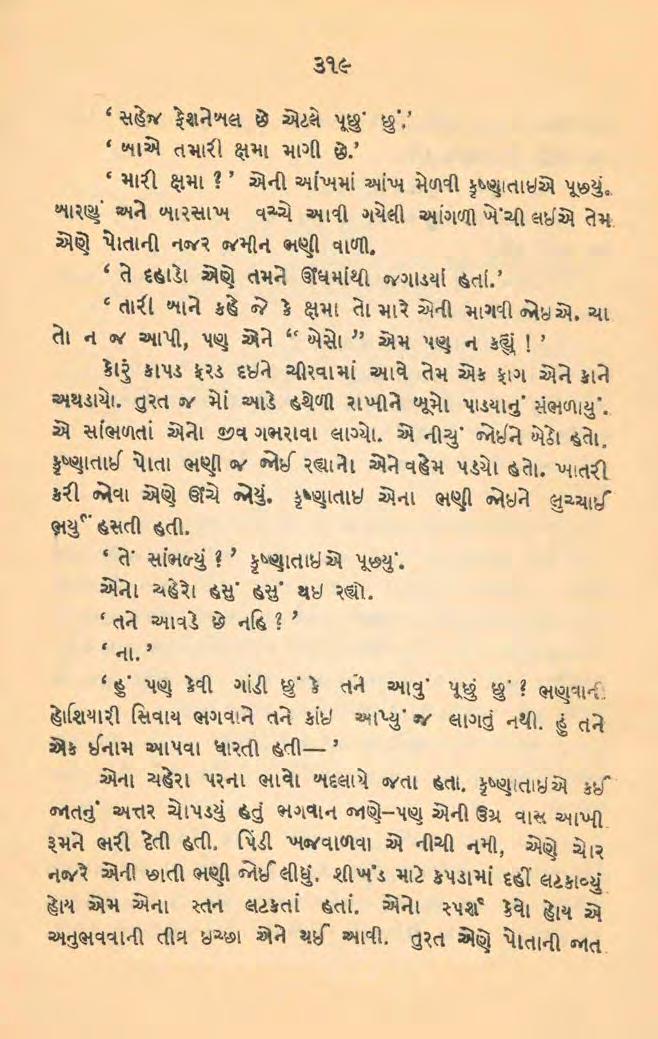 ૩૧૯
‘ સહેજ ફેશનેબલ છે એટલે પૂછું છું.’
‘ બાએ તમારી ક્ષમા માગી છે.’
‘ મારી ક્ષમા ? ’ એની આંખમાં આંખ મેળવી કૃષ્ણાતાઇએ પૂછ્યું.
બારણું અને બારસાખ વચ્ચે આવી ગયેલી આંગળી ખેંચી લઈએ તેમ
એણે પોતાની નજર જમીન ભણી વાળી.
‘ તે દહાડો એણે તમને ઊંઘમાંથી જગાડયાં હતાં.’
‘ તારી બાને કહે જે કે ક્ષમા તો મારે એની માગવી જોઇએ. ચા
તો ન જ આપી, પણ એને “ બેસો ” એમ પણ ન કહ્યું ! ’
કોરું કાપડ ફરડ દઇને ચીરવામાં આવે તેમ એક ફાગ એને કાને
અથડાયો. તુરત જ મોં આડે હથેળી રાખીને બૂમો પાડયાનું સંભળાયું.
એ સાંભળતાં એનો જીવ ગભરાવા લાગ્યો. એ નીચું જોઈને બેઠો હતો.
કૃષ્ણાતાઈ પોતા ભણી જ જોઈ રહ્યાનો એને વહેમ પડયો હતો. ખાતરી
કરી જોવા એણે ઊંચે જોયું. કૃષ્ણાતાઇ એના ભણી જોઇને લુચ્ચાઈ
ભર્યું હસતી હતી.
‘ તેં સાંભળ્યું ? ’ કૃષ્ણાતાઇએ પૂછયું.
એનો ચહેરો હસું હસું થઇ રહ્યો.
‘ તને આવડે છે નહિ ? ’
‘ ના. ’
‘ હું પણ કેવી ગાંડી છું કે તને આવું પૂછું છું ? ભણવાની
હોશિયારી સિવાય ભગવાને તને કાંઇ આપ્યું જ લાગતું નથી. હું તને
એક ઈનામ આપવા ધારતી હતી— ’
એના ચહેરા પરના ભાવો બદલાયે જતા હતા. કૃષ્ણાતાઇએ કઈ
જાતનું અત્તર ચોપડયું હતું ભગવાન જાણે–પણ એની ઉગ્ર વાસ આખી
રૂમને ભરી દેતી હતી. પિંડી ખજવાળવા એ નીચી નમી, એણે ચોર
નજરે એની છાતી ભણી જોઈ લીધું. શીખંડ માટે કપડામાં દહીં લટકાવ્યું
હોય એમ એના સ્તન લટકતાં હતાં. એનો સ્પર્શ કેવો હોય એ
અનુભવવાની તીવ્ર ઇચ્છા એને થઈ આવી. તુરત એણે પોતાની જાત